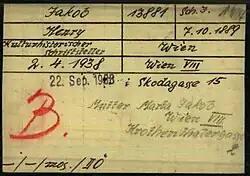 Jakob 13881 Sch. 3.
Henry 7.10.1889
Kulturhistorischer Schriftsteller Wien
2. 4. 1938 Wien VIII
22. Sep. 1938 : Skodagasse 15
B.
Mutter Maria Jakob
Wien VIII
-i-/mos./